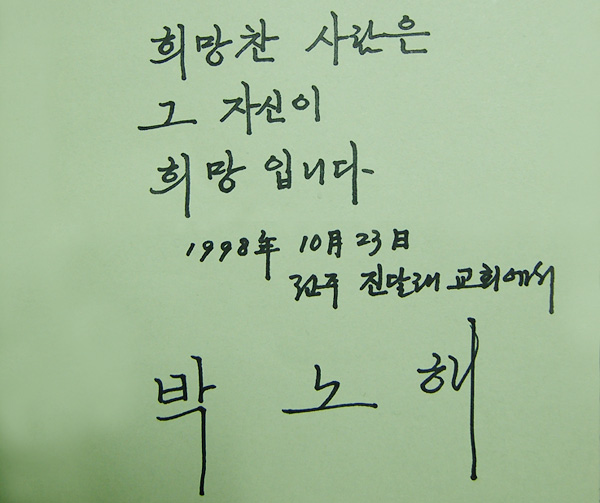 희망찬 사람은
그 자신이
희망입니다.
1998年 10月 23日
전주 진달래 교회에서
박노해